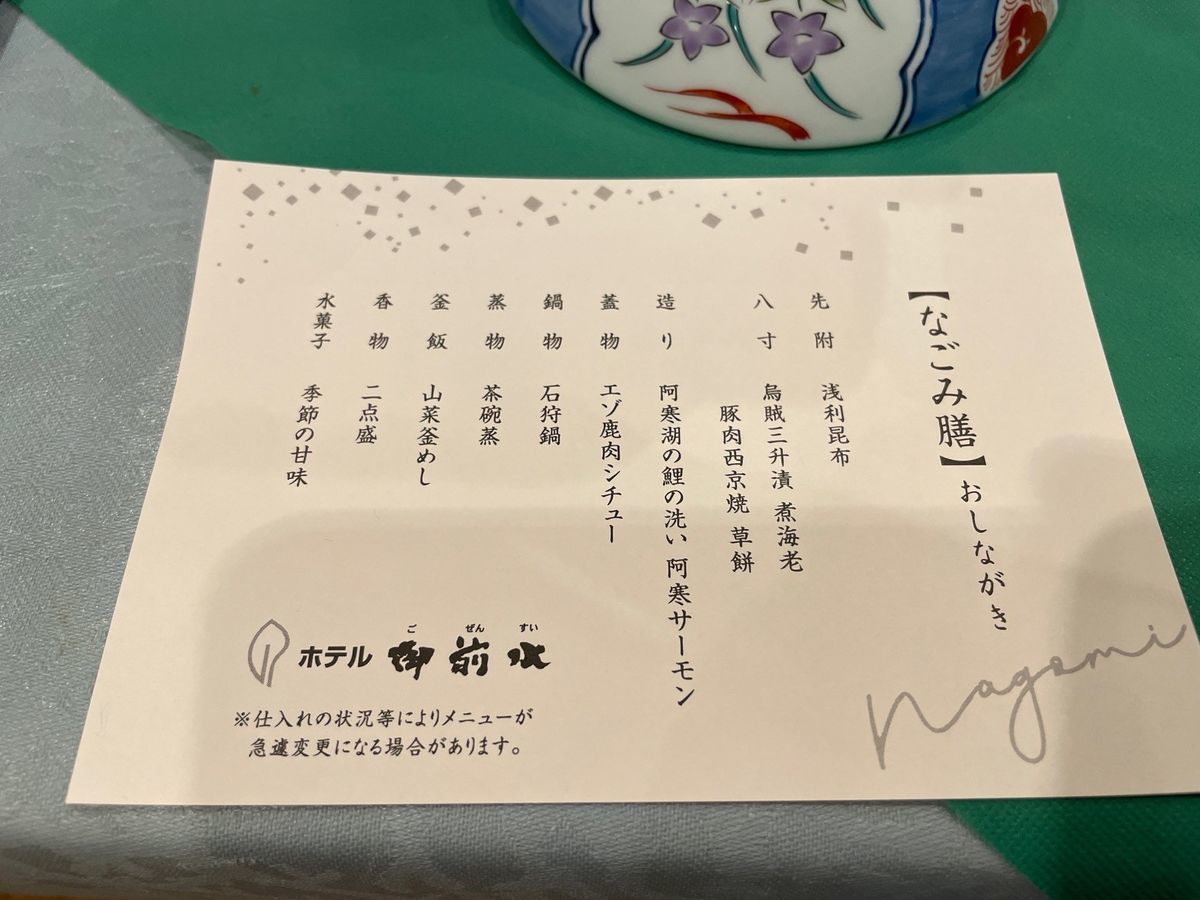 【なごみ膳】おしながき
先附 浅利昆布
八寸 烏賊三升漬 煮海老
豚肉西京焼 草餅
造り 阿寒湖の鯉の洗い 阿寒サーモン
蓋物 エゾ鹿肉シチュー
鍋物 石狩鍋
蒸物 茶碗蒸
釜飯 山菜釜めし
香物 二点盛
水菓子 季節の甘味
nagomi
ご ぜん すい
ホテル 御前水
※仕入れの状況等によりメニューが
急遽変更になる場合があります。